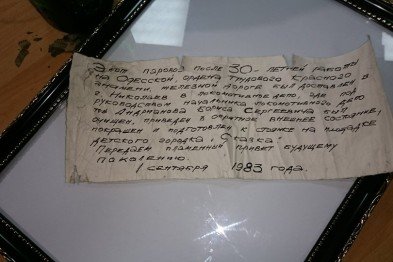 Этот паровоз после 30-летней работы
на Одесской ордена Трудового Красного
знамени, железной дороге был доставлен в
г. Николаев в локомотивное депо, где под
руководством начальника локомотивного депо
тч Андрианова Бориса Сергеевича был
очищен, приведен в опрятное внешнее состояние,
покрашен и подготовлен к стоянке на площадке
детского городка, Сказка.
Передаем пламенный привет будущему
поколению.
1 сентября 1983 года.